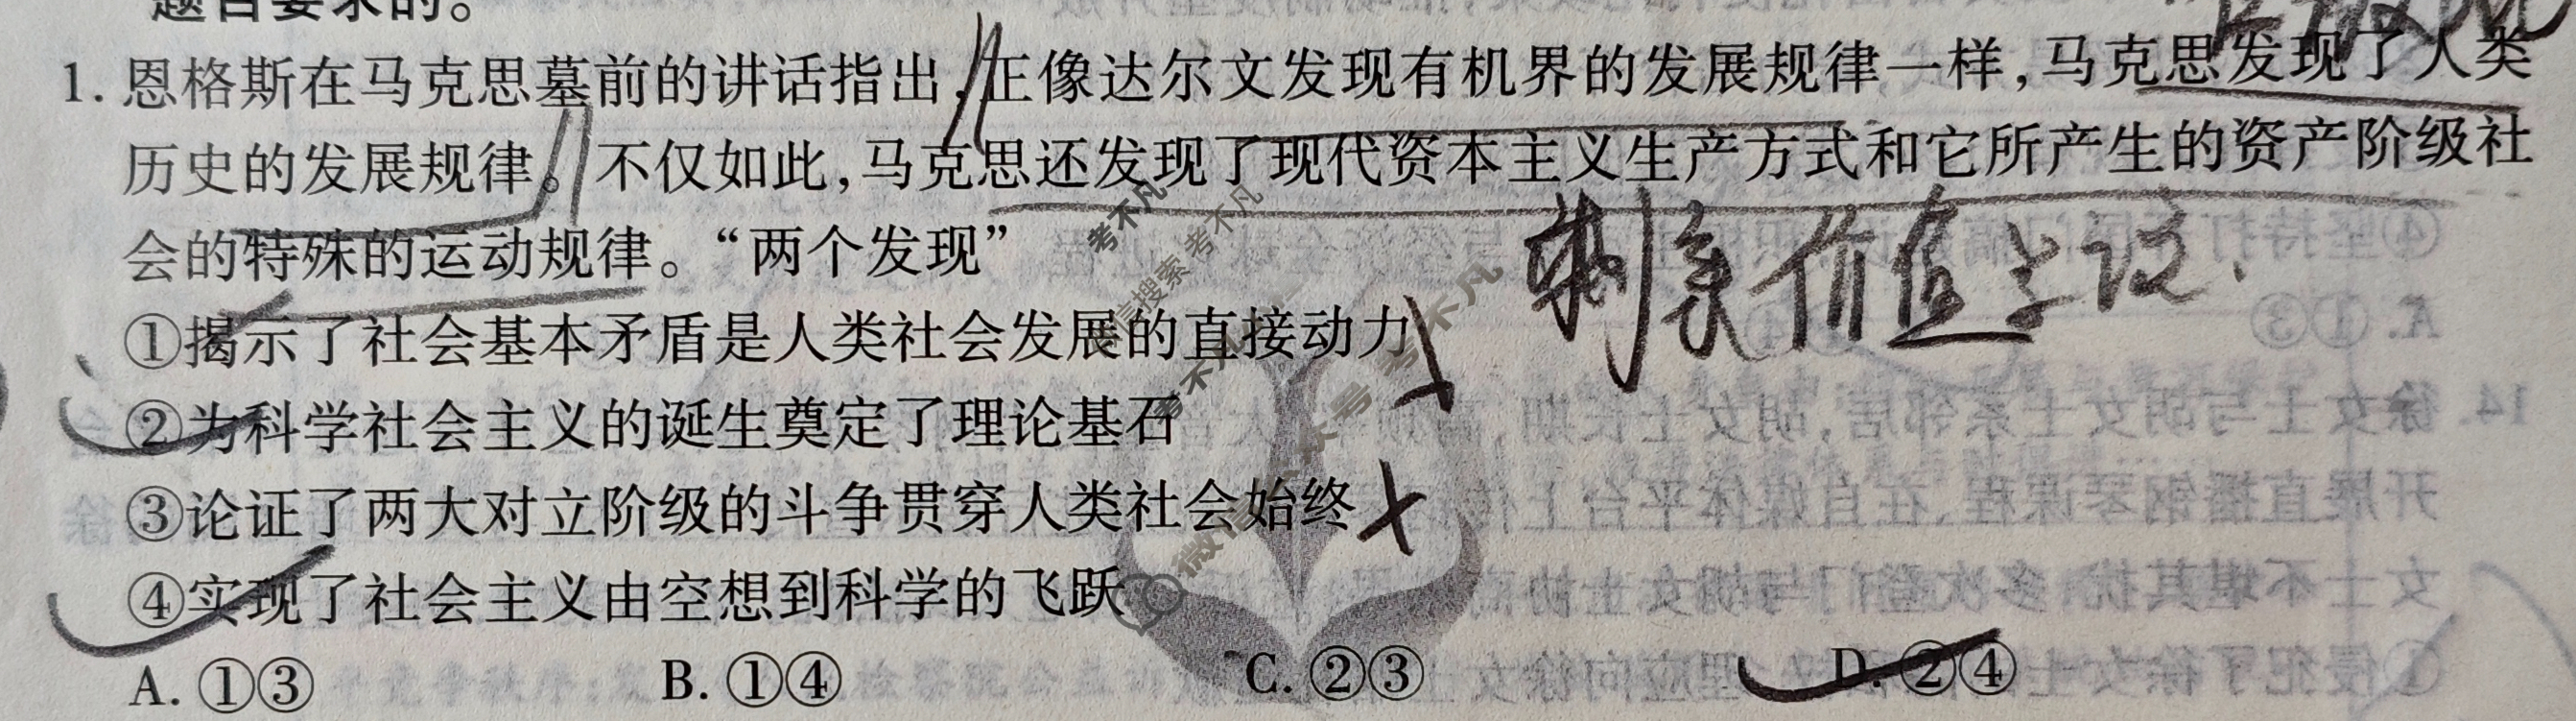 题目要求的。
1. 恩格斯在马克思墓前的讲话指出,正像达尔文发现有机界的发展规律一样,马克思发现了人类
历史的发展规律。不仅如此,马克思还发现了现代资本主义生产方式和它所产生的资产阶级社
会的特殊的运动规律。“两个发现”
剩余价值学说.
①揭示了社会基本矛盾是人类社会发展的直接动力
②为科学社会主义的诞生奠定了理论基石
③论证了两大对立阶级的斗争贯穿人类社会始终
④实现了社会主义由空想到科学的飞跃
A. ①③ B. ①④ C. ②③ D. ②④